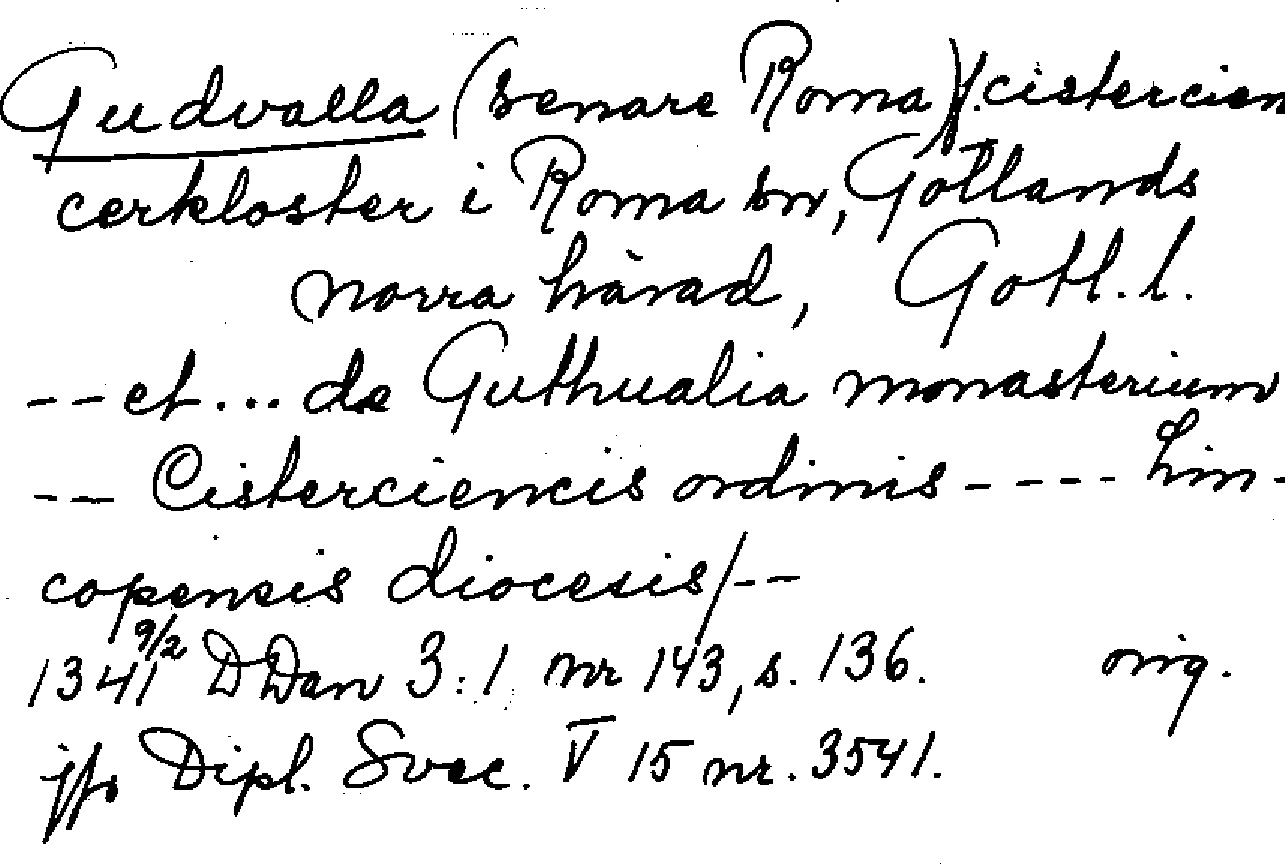 Gudvalla (senare Roma) f. cistercien
cerkloster i Roma sn, Gotlands
norra härad, Gotl. l.
-- et ... de Guthualia monasterium
-- Cisterciencis ordinis ---- Lin-
copensis diocesis/--
1341 9/2 DDan 3:1 nr 143, s. 136. orig.
jfr Dipl. Svec. V 15 nr. 3541.